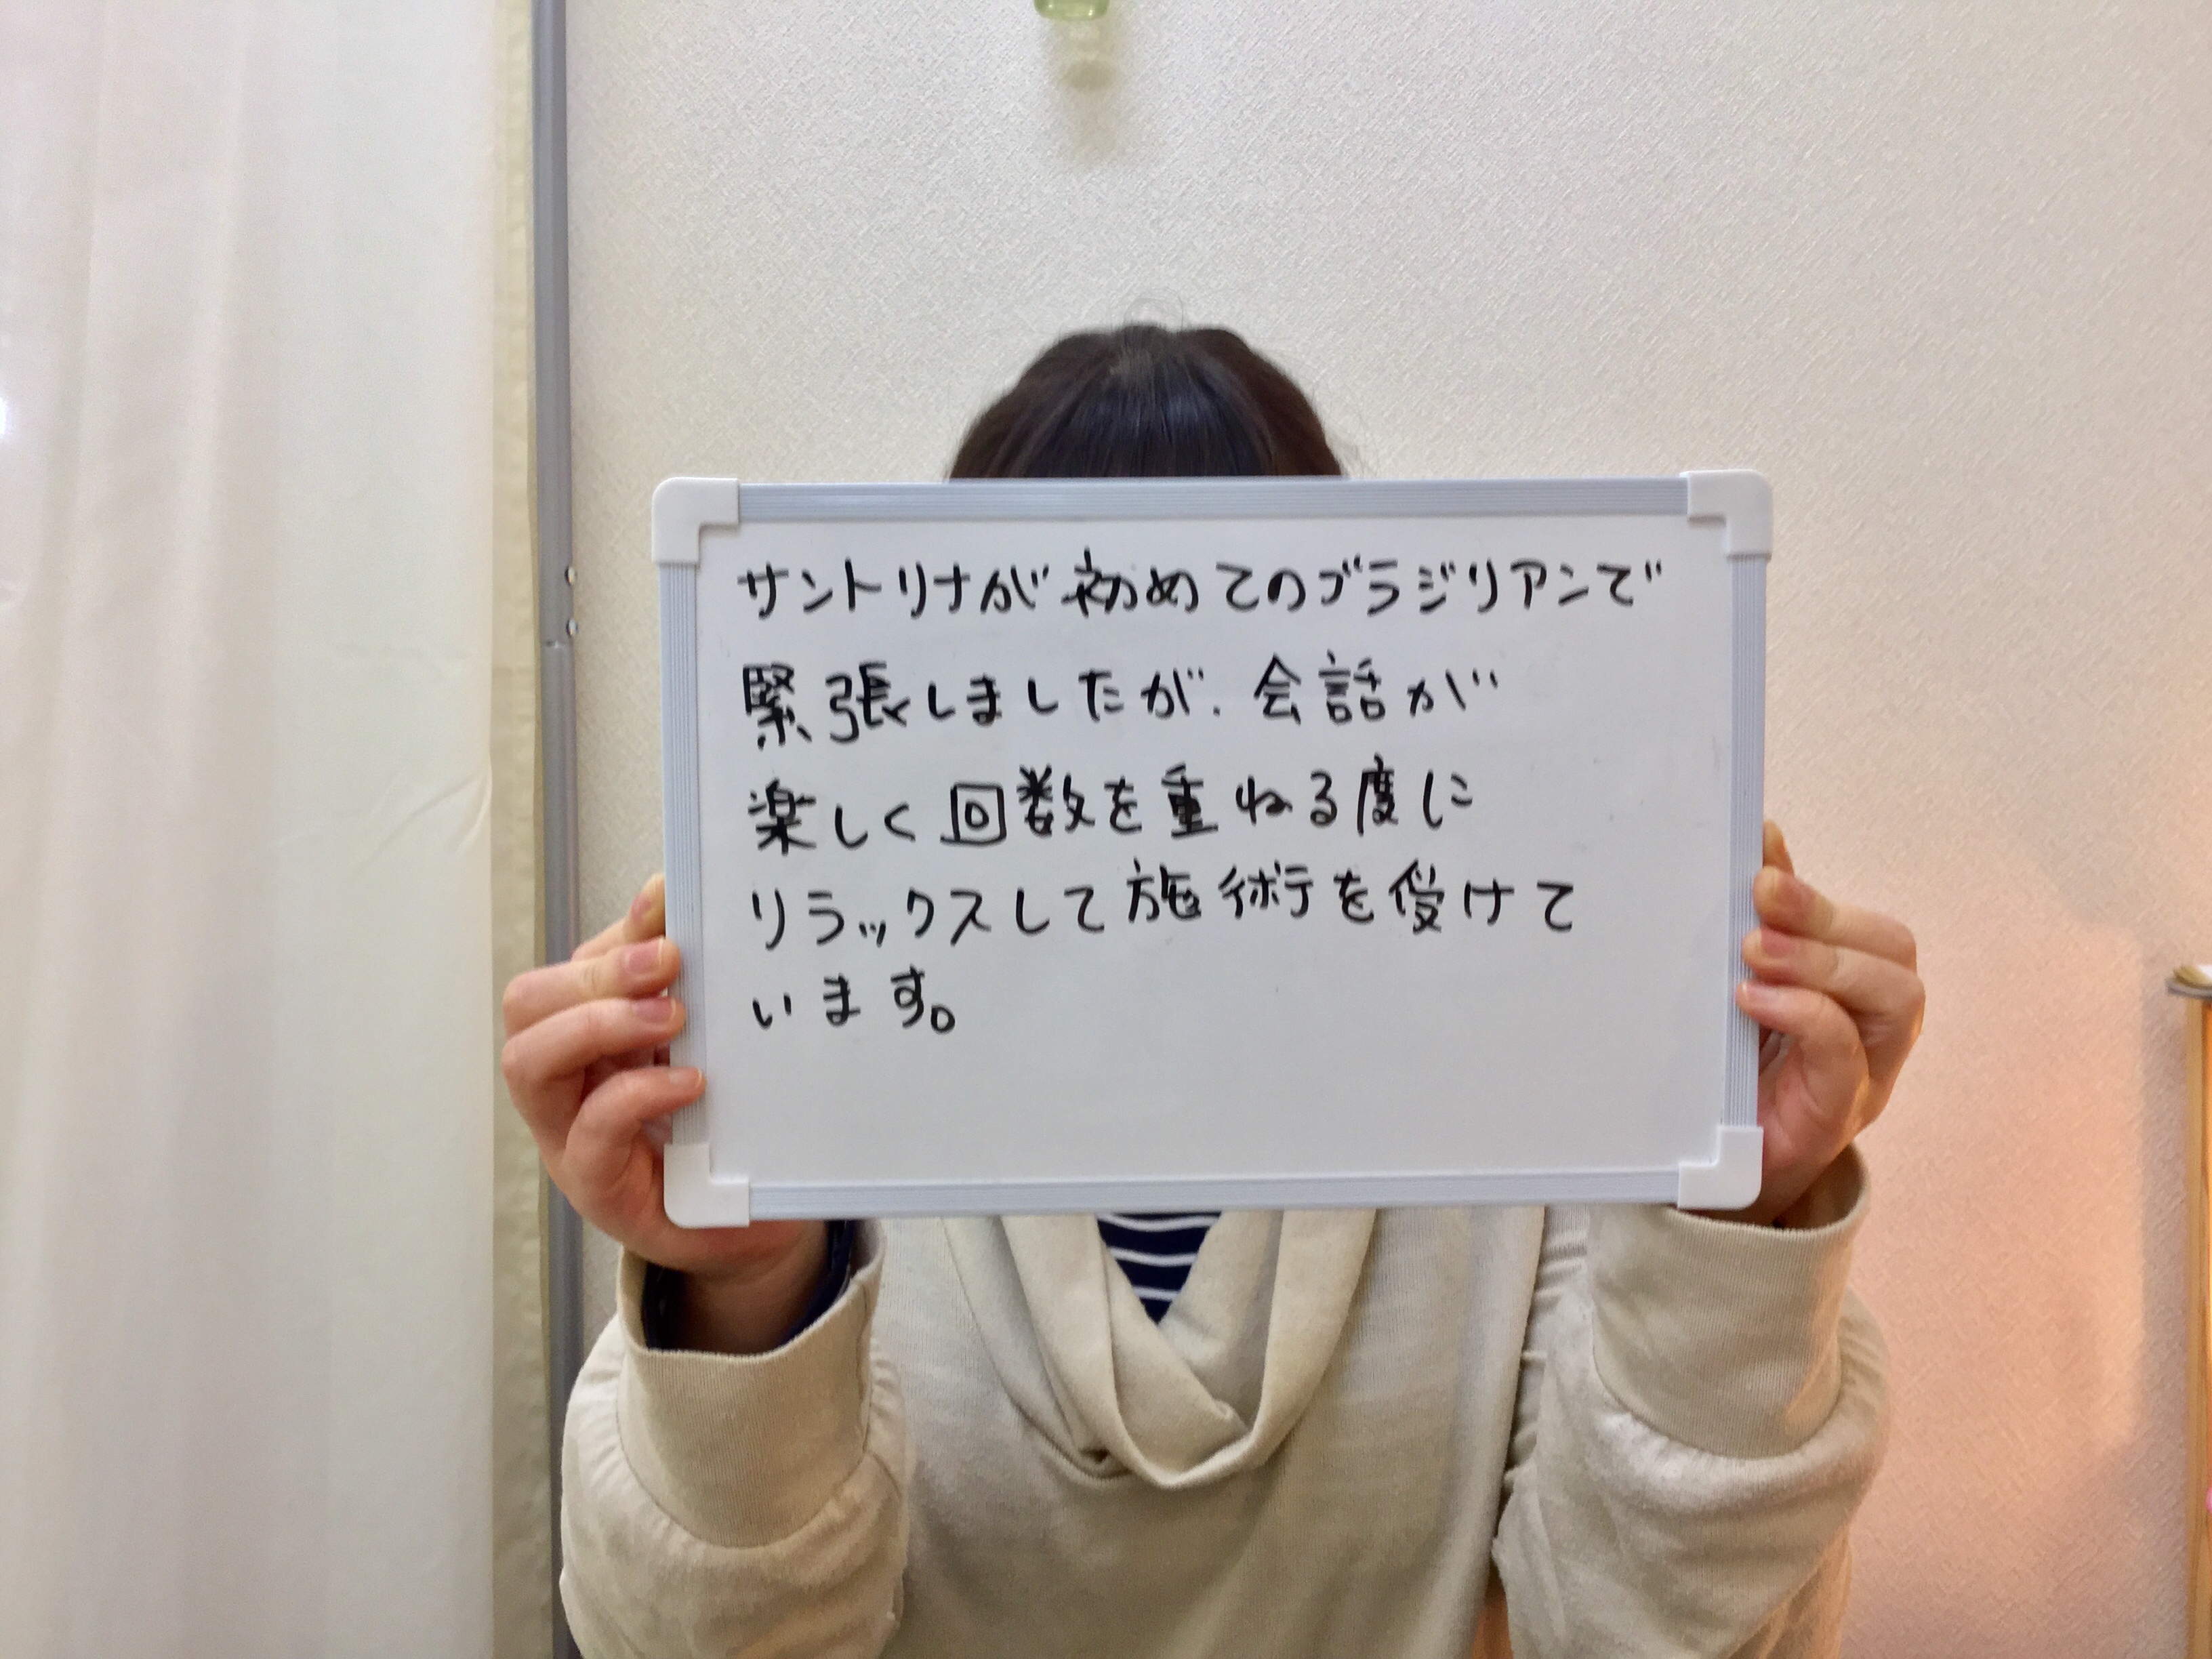 サントリナが初めてのブラジリアンで
緊張しましたが、会話が
楽しく回数を重ねる度に
リラックスして施術を受けて
います。